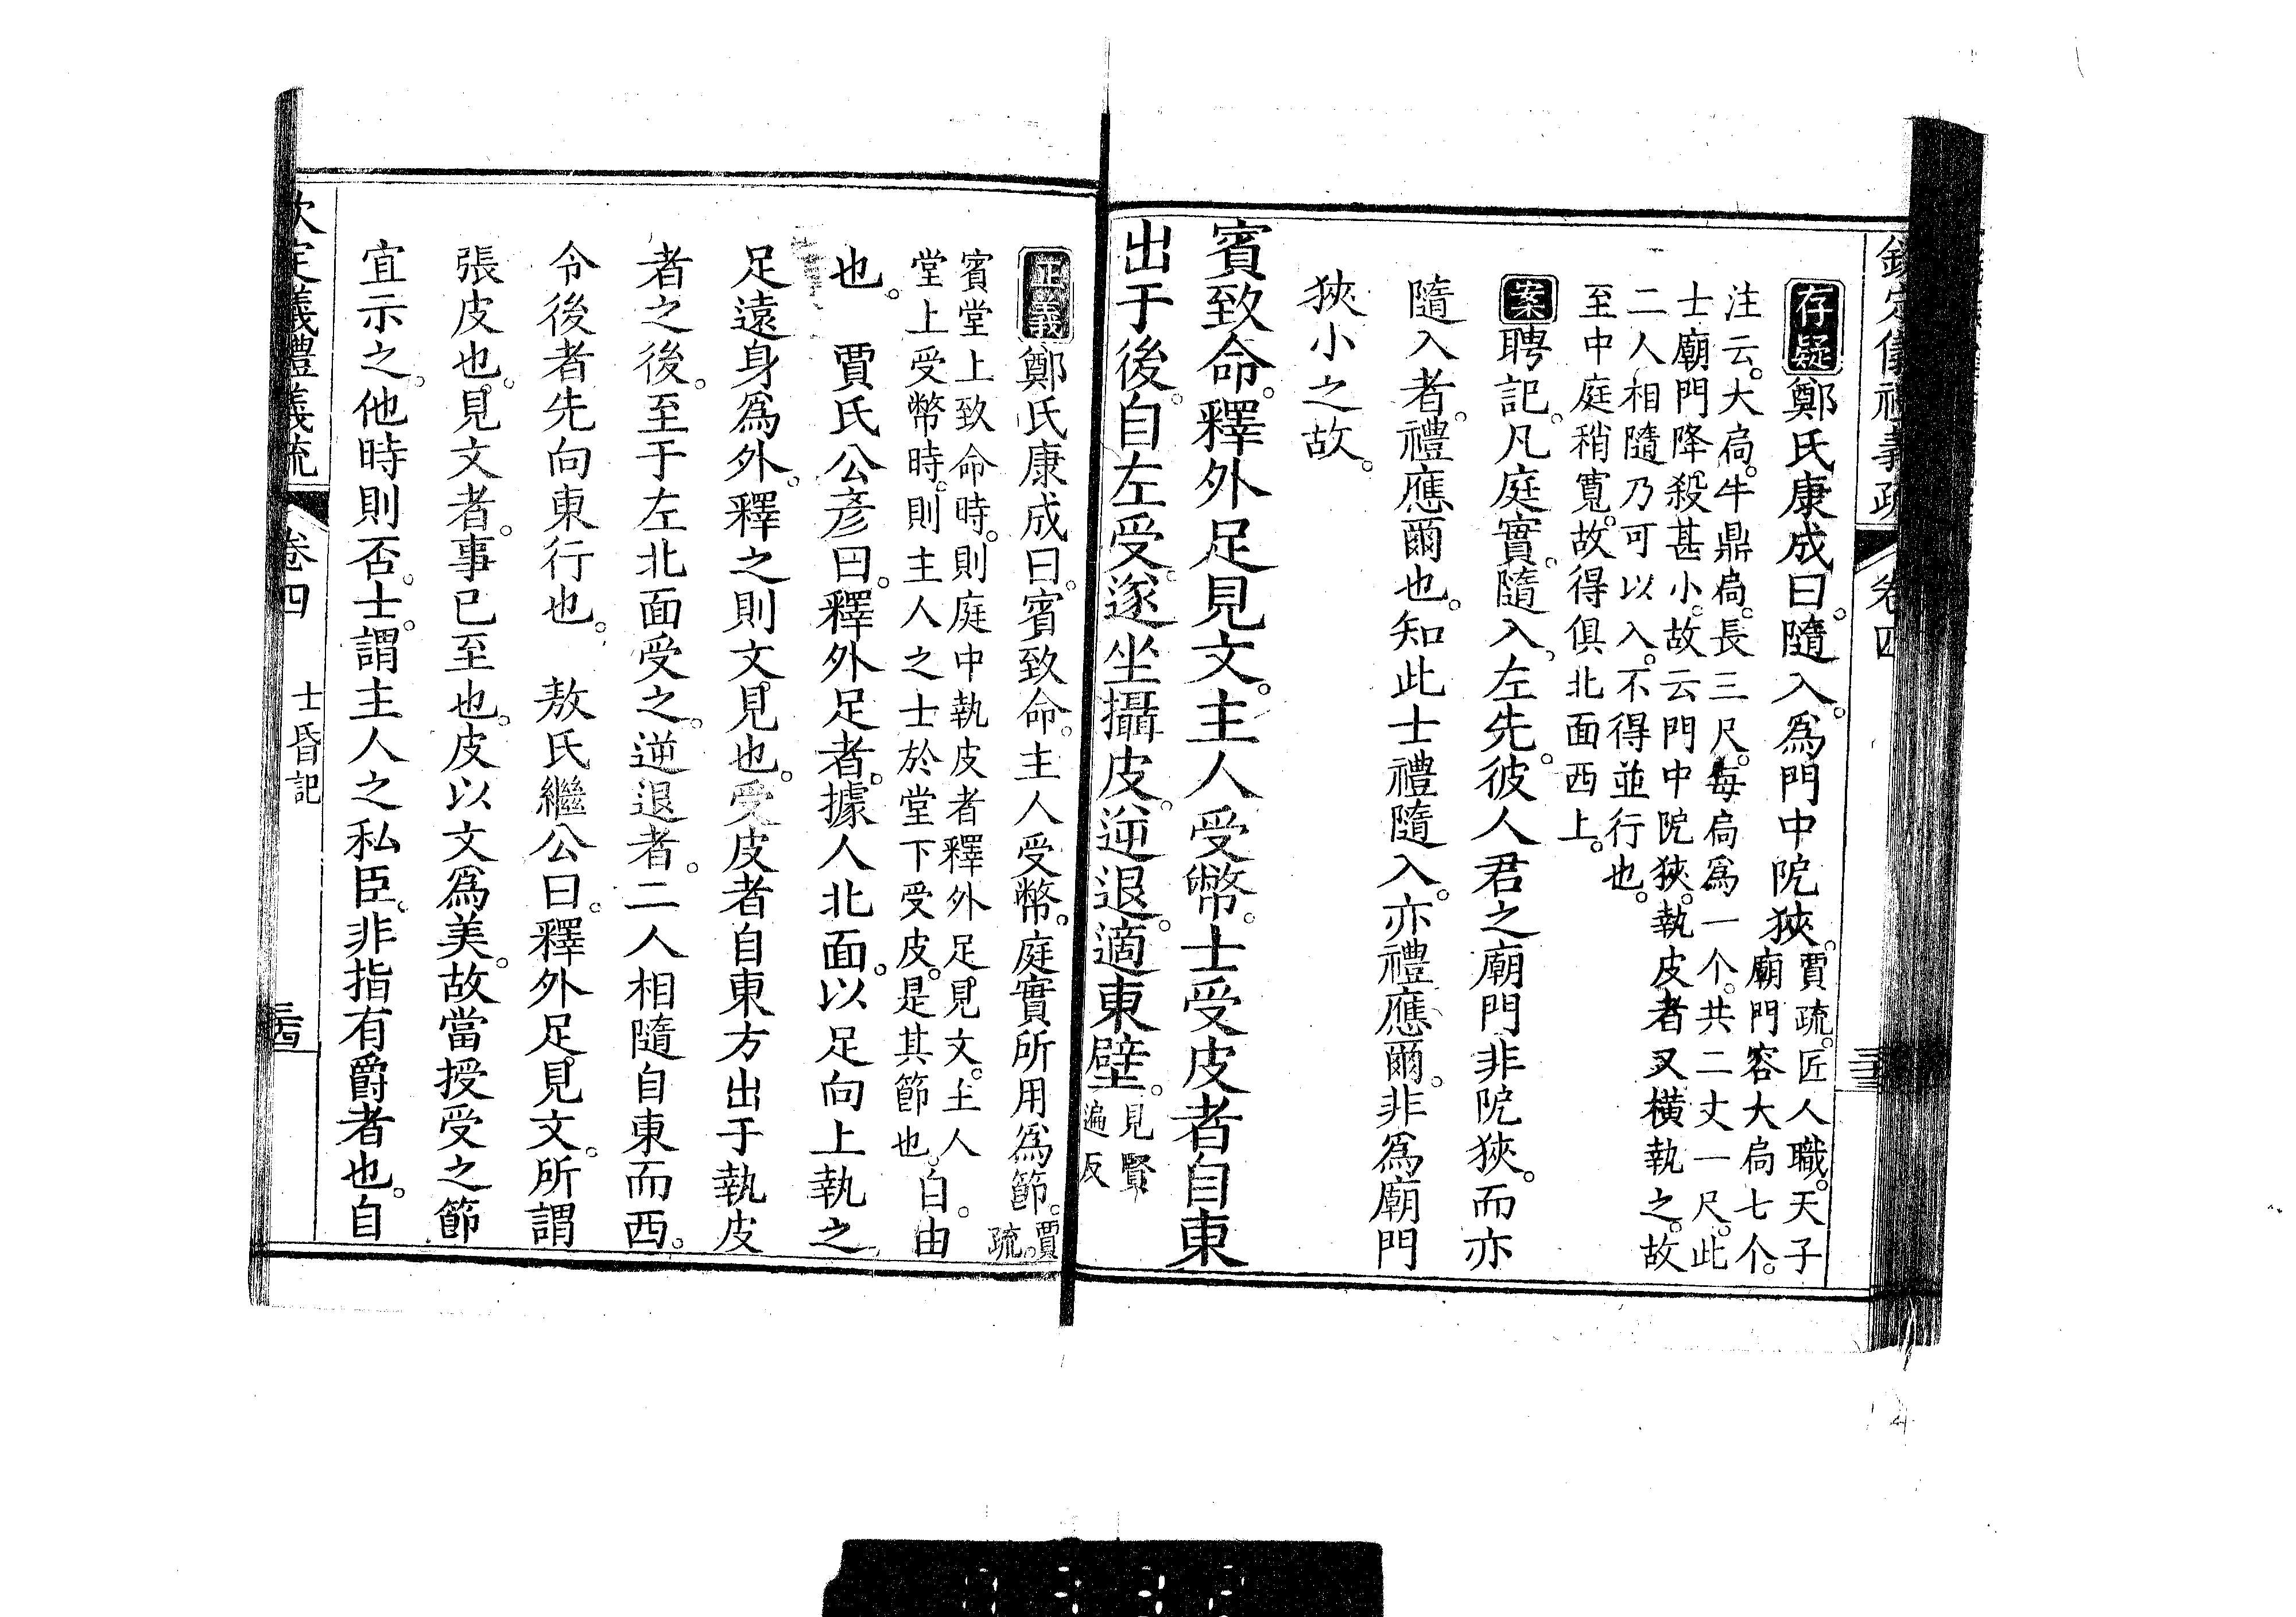 欽定儀禮義疏 卷四
存疑 鄭氏康成曰。隨入。爲門中阨狹。賈疏。匠人職。天子廟門容大扃七个。
注云。大扃。牛鼎扃。長三尺。每扃爲一个。共二丈一尺。此士廟門降殺甚小。故云門中阨狹。執皮者又橫執之。故
二人相隨乃可以入。不得並行也。至中庭稍寬。故得俱北面西上。
案 聘記。凡庭實。隨入、左先。彼人君之廟門非阨狹。而亦
隨入者。禮應爾也。知此士禮隨入。亦禮應爾。非爲廟門
狹小之故。
賓致命。釋外足見文。主人受幣。士受皮者自東
出于後。自左受。遂坐攝皮。逆退。適東壁。見賢遍反
正義 鄭氏康成曰。賓致命。主人受幣。庭實所用爲節。賈疏。
賓堂上致命時。則庭中執皮者釋外足見文。主人堂上受幣時。則主人之士於堂下受皮。是其節也。自。由
也。 賈氏公彥曰。釋外足者。據人北面。以足向上執之。
足遠身爲外。釋之則文見也。受皮者自東方出于執皮
者之後。至于左北面受之。逆退者。二人相隨自東而西。
令後者先向東行也。 敖氏繼公曰。釋外足。見文。所謂
張皮也。見文者。事已至也。皮以文爲美。故當授受之節
宜示之。他時則否。士。謂主人之私臣。非指有爵者也。自
欽定儀禮義疏 卷四 士昏記